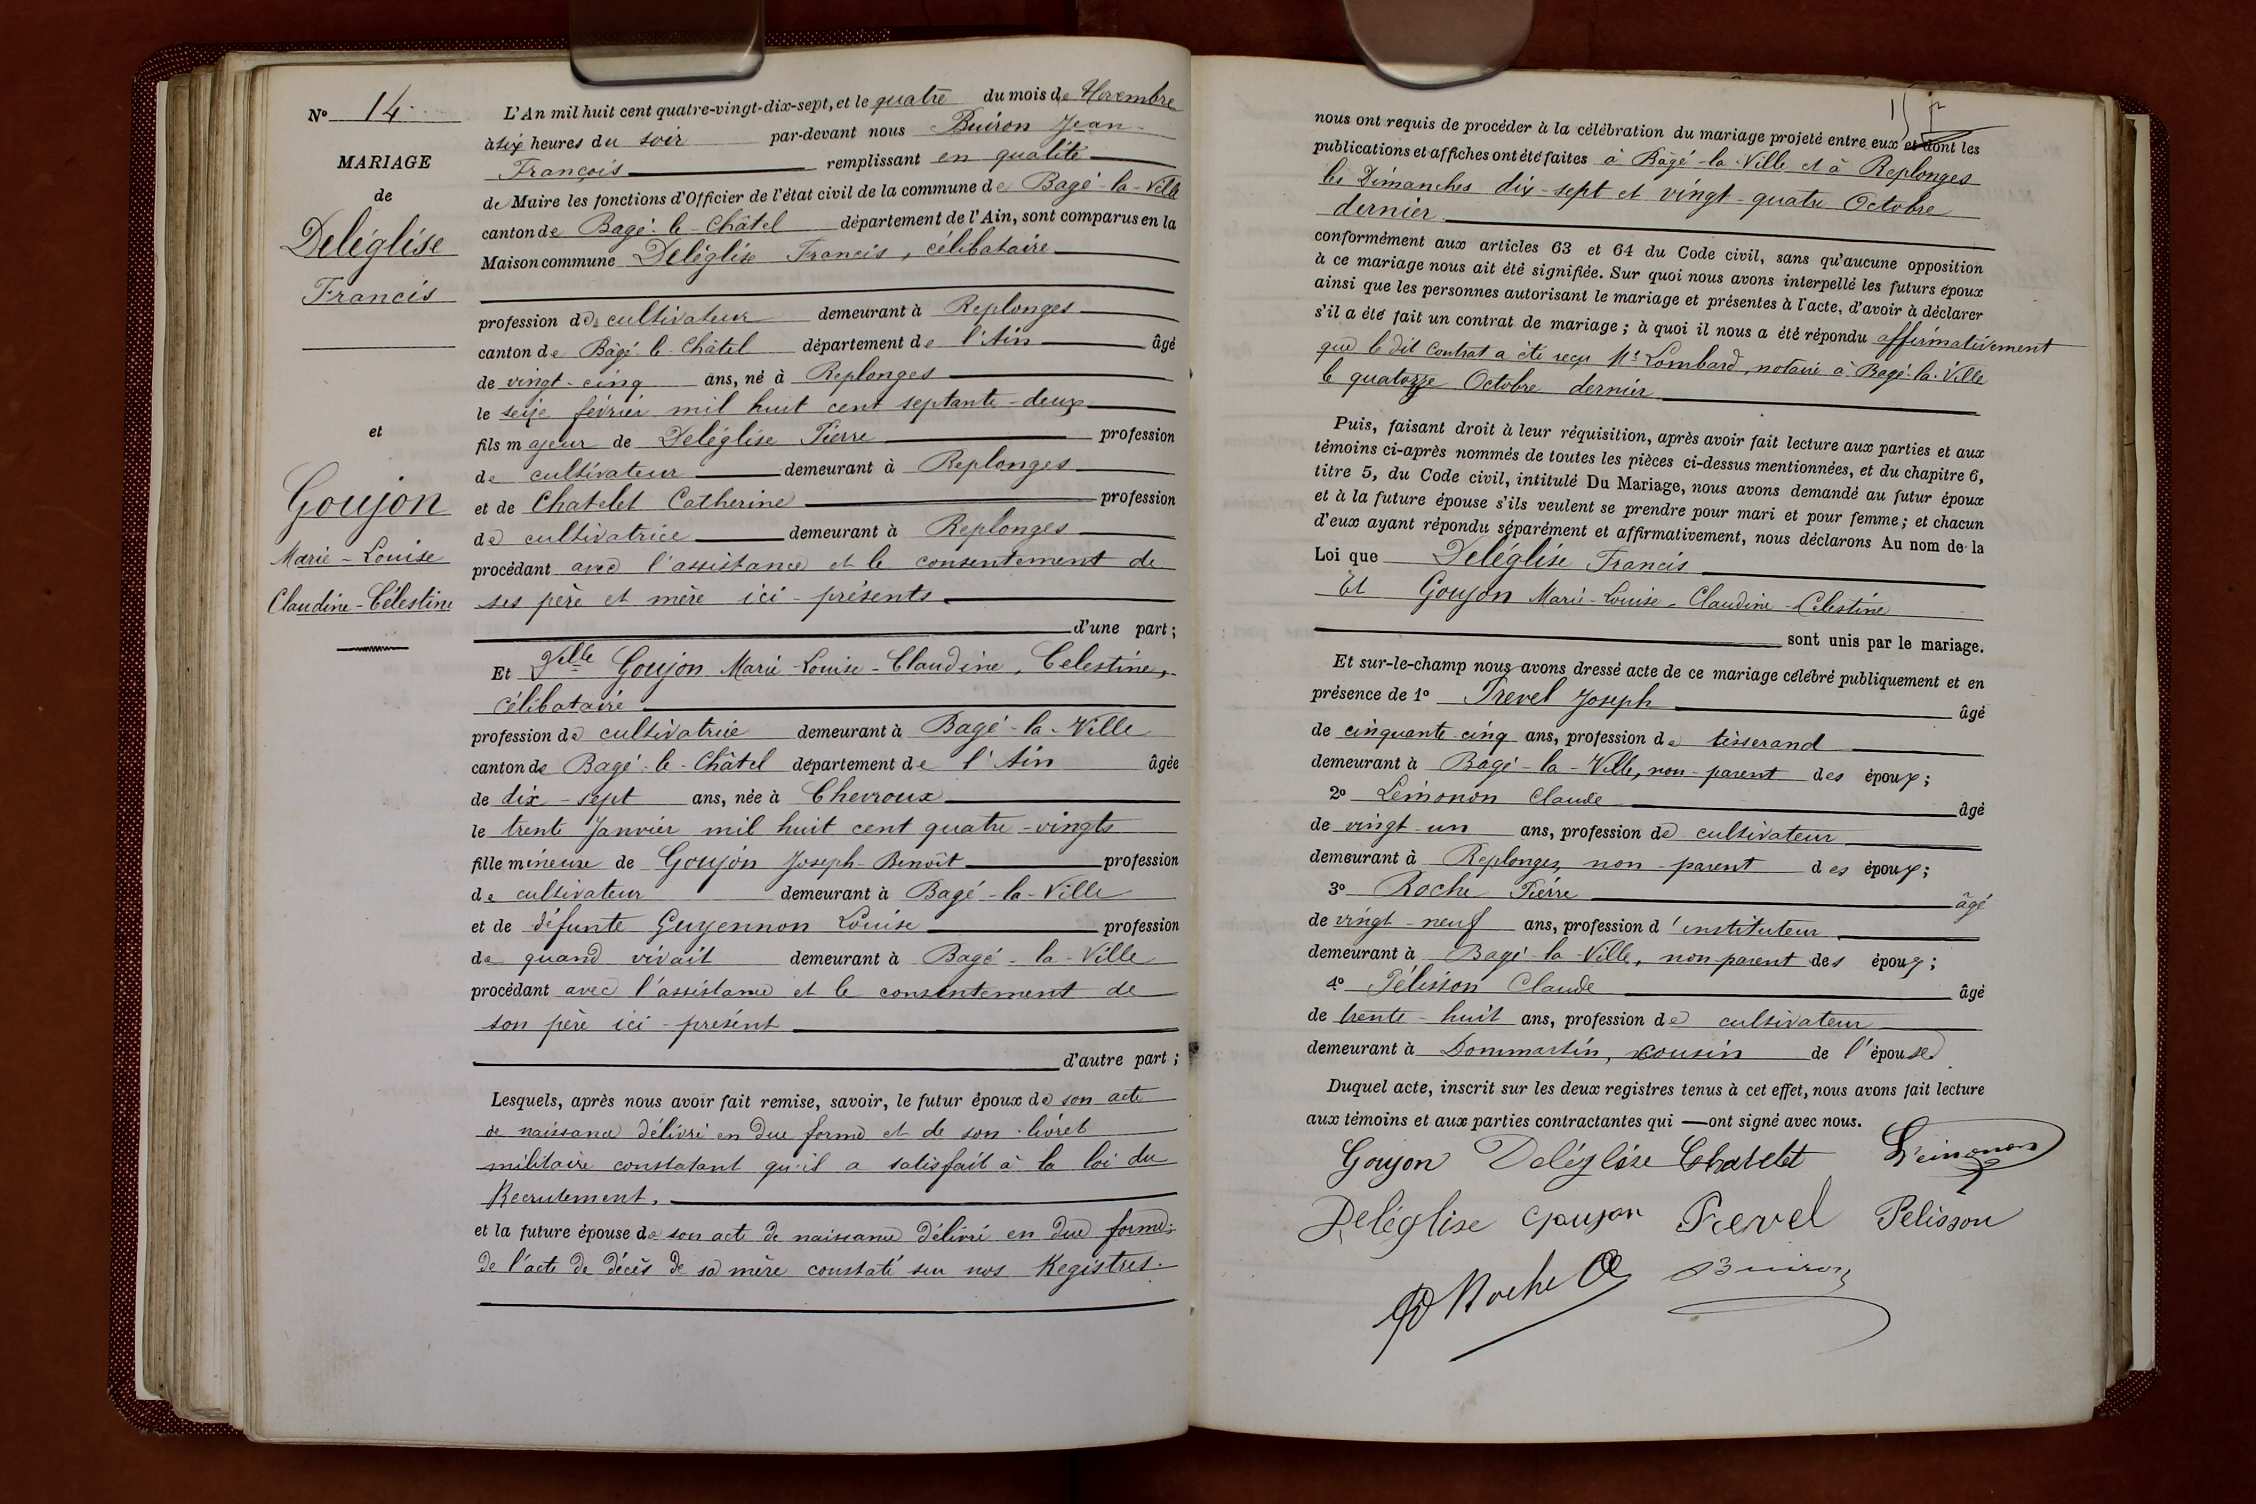 N° 14
MARIAGE
de
Deléglise
Francis
et
Goujon
Marie-Louise
Claudine-Célestine
L'An mil huit cent quatre-vingt-dix-sept, et le quatre du mois de Novembre
à six heures du soir par-devant nous Buiron Jean-
François remplissant en qualité
de Maire les fonctions d'Officier de l'état civil de la commune de Bagé-la-Ville
canton de Bagé-le-Châtel département de l'Ain, sont comparus en la
Maison commune Deléglise Francis, célibataire
profession de cultivateur demeurant à Replonges
canton de Bâgé-le-Châtel département de l'Ain âgé
de vingt-cinq ans, né à Replonges
le seize février mil huit cent septante-deux
fils majeur de Deléglise Pierre profession
de cultivateur demeurant à Replonges
et de Chatelet Catherine profession
de cultivatrice demeurant à Replonges
procédant avec l'assistance et le consentement de
ses père et mère ici-présents
d'une part;
Et Delle Goujon Marie-Louise-Claudine, Celestine,
célibataire
profession de cultivatrice demeurant à Bagé-la-Ville
canton de Bagé-le-Châtel département de l'Ain âgée
de dix-sept ans, née à Chevroux
le trente Janvier mil huit cent quatre-vingts
fille mineure de Goujon Joseph-Benoît profession
de cultivateur demeurant à Bagé-la-Ville
et de défunte Guyennon Louise profession
de quand vivait demeurant à Bagé-la-Ville
procédant avec l'assistance et le consentement de
son père ici-présent
d'autre part;
Lesquels, après nous avoir fait remise, savoir, le futur époux de son acte
de naissance délivré en due forme et de son livret
militaire constatant qu'il a satisfait à la loi du
Recrutement.
et la future épouse de son acte de naissance délivré en due forme;
de l'acte de décès de sa mère constaté sur nos Registres.
15
nous ont requis de procéder à la célébration du mariage projeté entre eux et dont les
publications et affiches ont été faites à Bâgé-la-Ville et à Replonges
les Dimanches dix-sept et vingt-quatre Octobre
dernier
conformément aux articles 63 et 64 du Code civil, sans qu'aucune opposition
à ce mariage nous ait été signifiée. Sur quoi nous avons interpellé les futurs époux
ainsi que les personnes autorisant le mariage et présentes à l'acte, d'avoir à déclarer
s'il a été fait un contrat de mariage; à quoi il nous a été répondu affirmativement
que le dit Contrat a été reçu Me Lombard, notaire à Bagé-la-Ville
le quatorze Octobre dernier
Puis, faisant droit à leur réquisition, après avoir fait lecture aux parties et aux
témoins ci-après nommés de toutes les pièces ci-dessus mentionnées, et du chapitre 6,
titre 5, du Code civil, intitulé Du Mariage, nous avons demandé au futur époux
et à la future épouse s'ils veulent se prendre pour mari et pour femme; et chacun
d'eux ayant répondu séparément et affirmativement, nous déclarons Au nom de la
Loi que Deléglise Francis
Et Goujon Marie-Louise-Claudine-Celestine
sont unis par le mariage.
Et sur-le-champ nous avons dressé acte de ce mariage célébré publiquement et en
présence de 1° Prevel Joseph âgé
de cinquante cinq ans, profession de tisserand
demeurant à Bagé-la-Ville, non-parent des époux;
2° Lémonon Claude âgé
de vingt-un ans, profession de cultivateur
demeurant à Replonges, non-parent des époux;
3° Roche Pierre âgé
de vingt-neuf ans, profession d'instituteur
demeurant à Bagé-la-Ville, non parent des époux;
4° Pélisson Claude âgé
de trente-huit ans, profession de cultivateur
demeurant à Dommartin, cousin de l'épouse
Duquel acte, inscrit sur les deux registres tenus à cet effet, nous avons fait lecture
aux témoins et aux parties contractantes qui ont signé avec nous.
Goujon Deléglise Chatelet Lémonon
Deléglise Goujon Prevel Pélisson
Roche Buiron